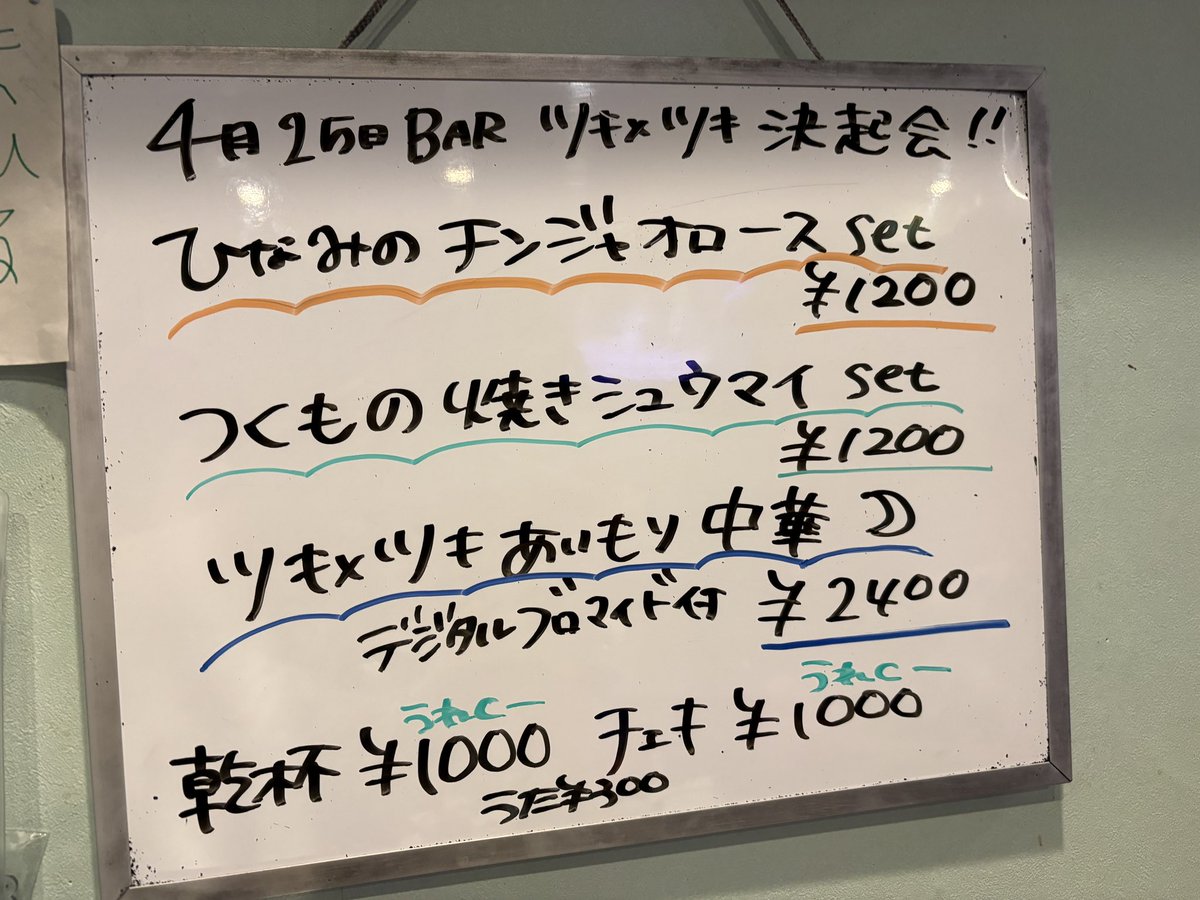 4月25日 BAR ツキ×ツキ 決起会!!
ひなみの チンジャオロース set
¥1200
つくもの 焼きシュウマイ set
¥1200
ツキ×ツキ あいもり 中華☽
デジタルブロマイド付 ¥2400
うれCー うれCー
乾杯 ¥1000 チェキ ¥1000
うた¥300